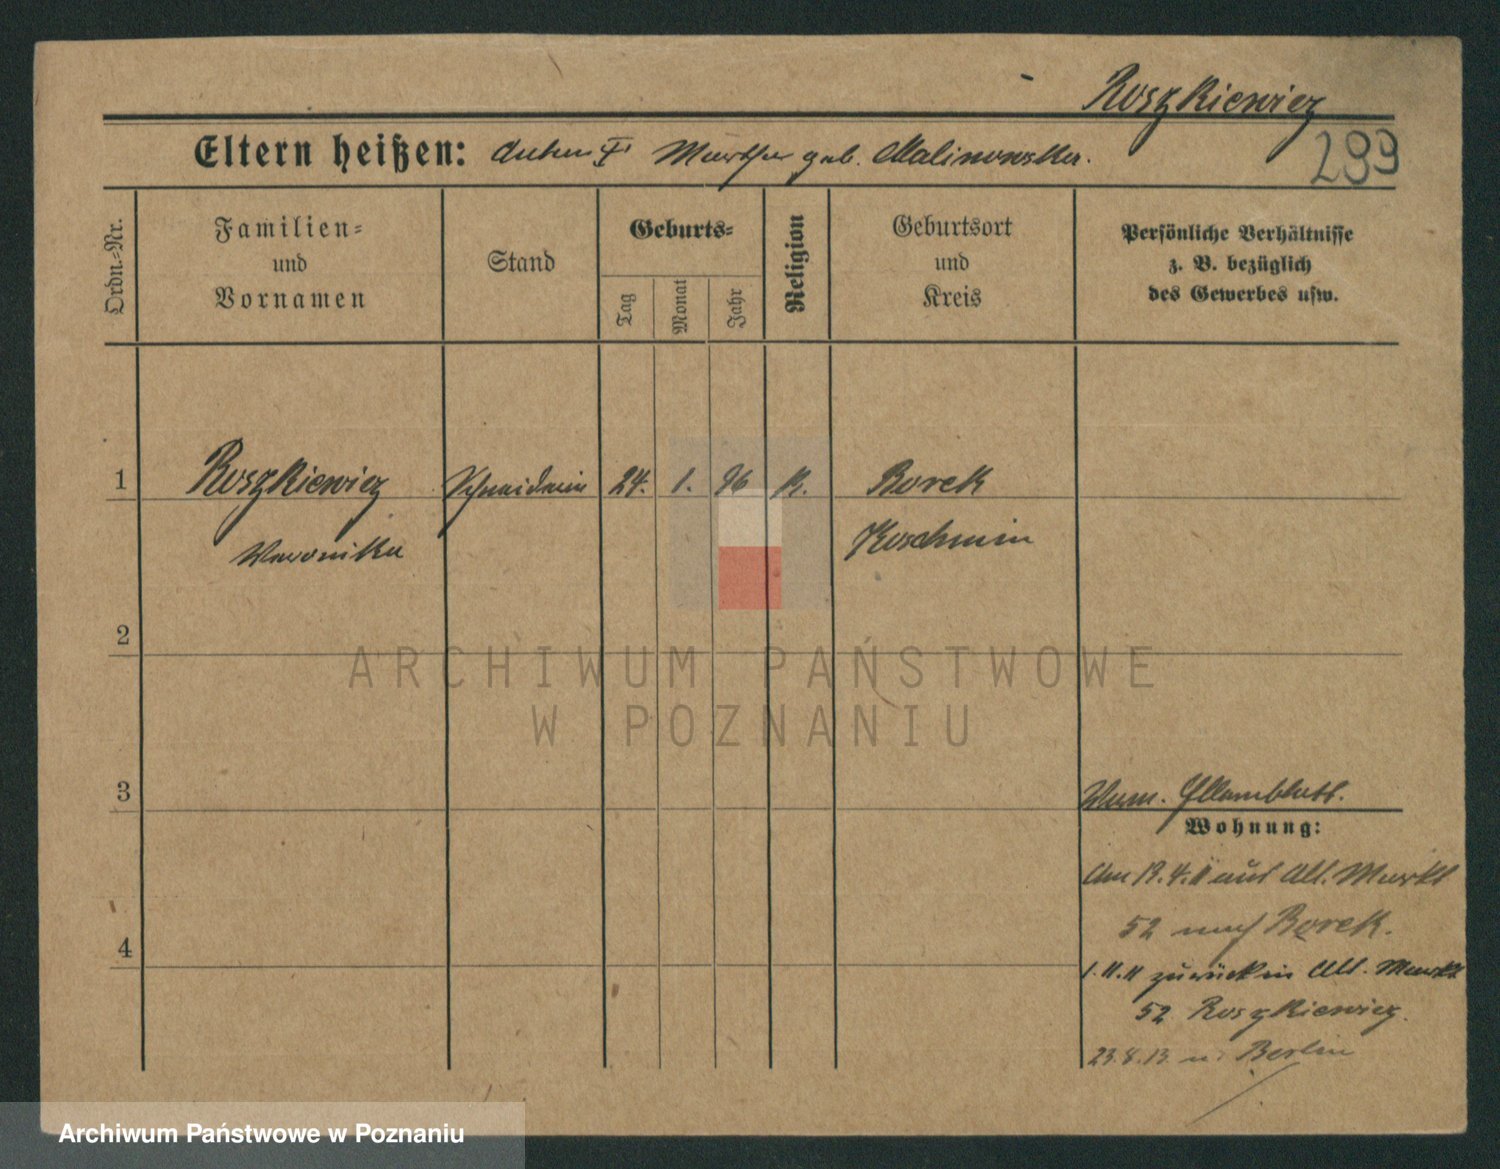 Roszkiewicz
299
Eltern heißen: Anton † Martha geb. Malinowska.
Ordn.-Nr.
Familien- und Vornamen
Stand
Geburts-
Tag
Monat
Jahr
Religion
Geburtsort und Kreis
Persönliche Verhältnisse
z. B. bezüglich
des Gewerbes usw.
1 Roszkiewicz Schneiderin 24. 1. 96 k. Borek
Weronika Koschmin
2
3
Stammblatt.
Wohnung:
Am 19.4.11 aus Alt. Markt
52 nach Borek.
1.11.11 zurück in Alt. Markt
52 Roszkiewicz.
4
23.8.13. n. Berlin
ARCHIWUM PAŃSTWOWE
W POZNANIU
Archiwum Państwowe w Poznaniu